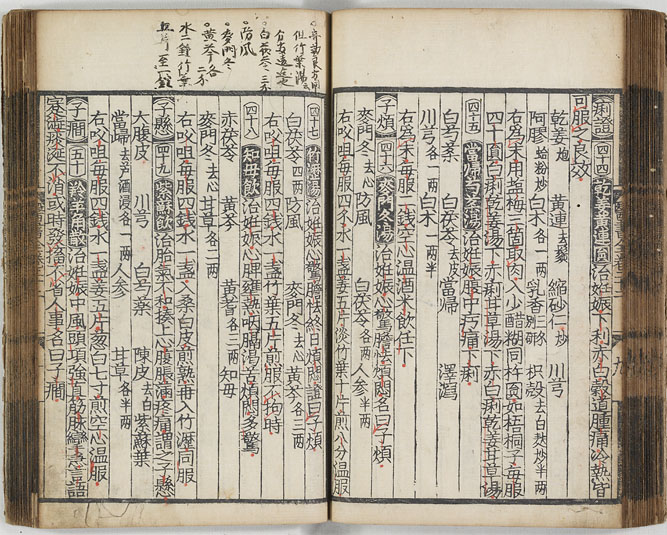 痢證 四十四 乾姜黃連圓 治姙娠下利赤白穀道腫痛冷熱皆
可服之良效
乾姜炮 黃連去鬚 縮砂仁炒 川芎
阿膠蛤粉炒 白朮各一兩 乳香三錢別研 枳殼去白麸炒半兩
右爲末用塩梅三箇取肉入少醋糊同杵圓如梧桐子每服
四十圓白痢乾姜湯下赤痢甘草湯下赤白痢乾姜甘草湯
四十五 當歸芍藥湯 治姙娠腹中㽲痛下痢
白芍藥 白茯苓去皮 當歸 澤瀉
川芎各一兩 白朮一兩半
右爲末每服一錢空心温酒米飲任下
子煩 四十六 麥門冬湯 治姙娠心驚膽怯煩悶名曰子煩
麥門冬去心 防風 白茯苓各二兩 人参半兩
右㕮咀每服四錢水一盞姜五片淡竹葉十片煎八分温服
白茯苓三分
防風
麥門冬
黃芩各二分
水二鍾竹葉
四十七 竹葉湯 治姙娠心驚膽怯終日煩悶證曰子煩
白茯苓四兩 防風 麥門冬去心 黃芩各三兩
右㕮咀每服四錢水一盞竹葉五片煎服不拘時
四十八 知母飲 治姙娠心脾壅熱咽膈渴苦煩悶多驚
赤茯苓 黃芩 黃蓍各三兩 知母
麥門冬去心 甘草各二兩
右㕮咀每服四錢水一盞入桑白皮煎熟再入竹瀝同服
子懸 四十九 紫蘇飲 治胎氣不和揍上心腹脹滿疼痛謂之子懸
大腹皮 川芎 白芍藥 陳皮去白 紫蘇葉
當歸去芦酒浸各一兩 人参 甘草各半兩
右㕮咀每服四錢水一盞姜五片葱白七寸煎空心温服
子癇 五十 羚羊角散 治姙娠中風頭項強直筋脉攣急言語
蹇澁痰涎不消或時發搐不省人事名曰子癇